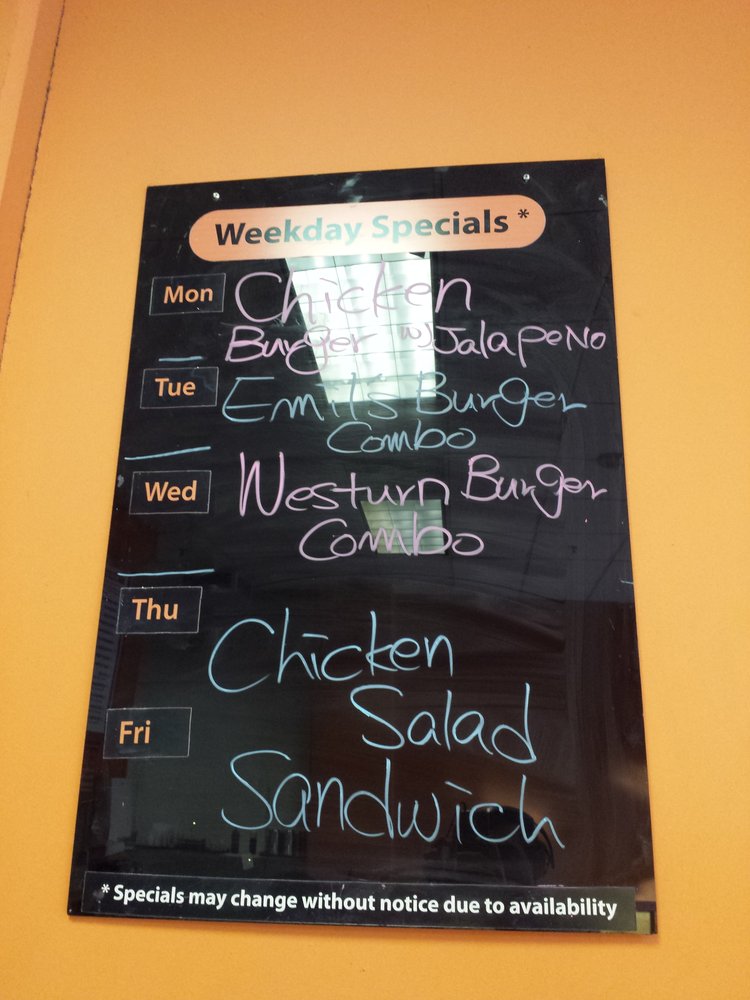 Weekday Specials *
Mon Chicken
Burger w/ Jalapeno
Tue Emil's Burger
Combo
Wed Westurn Burger
Combo
Thu
Chicken
Salad
Fri
Sandwich
* Specials may change without notice due to availability